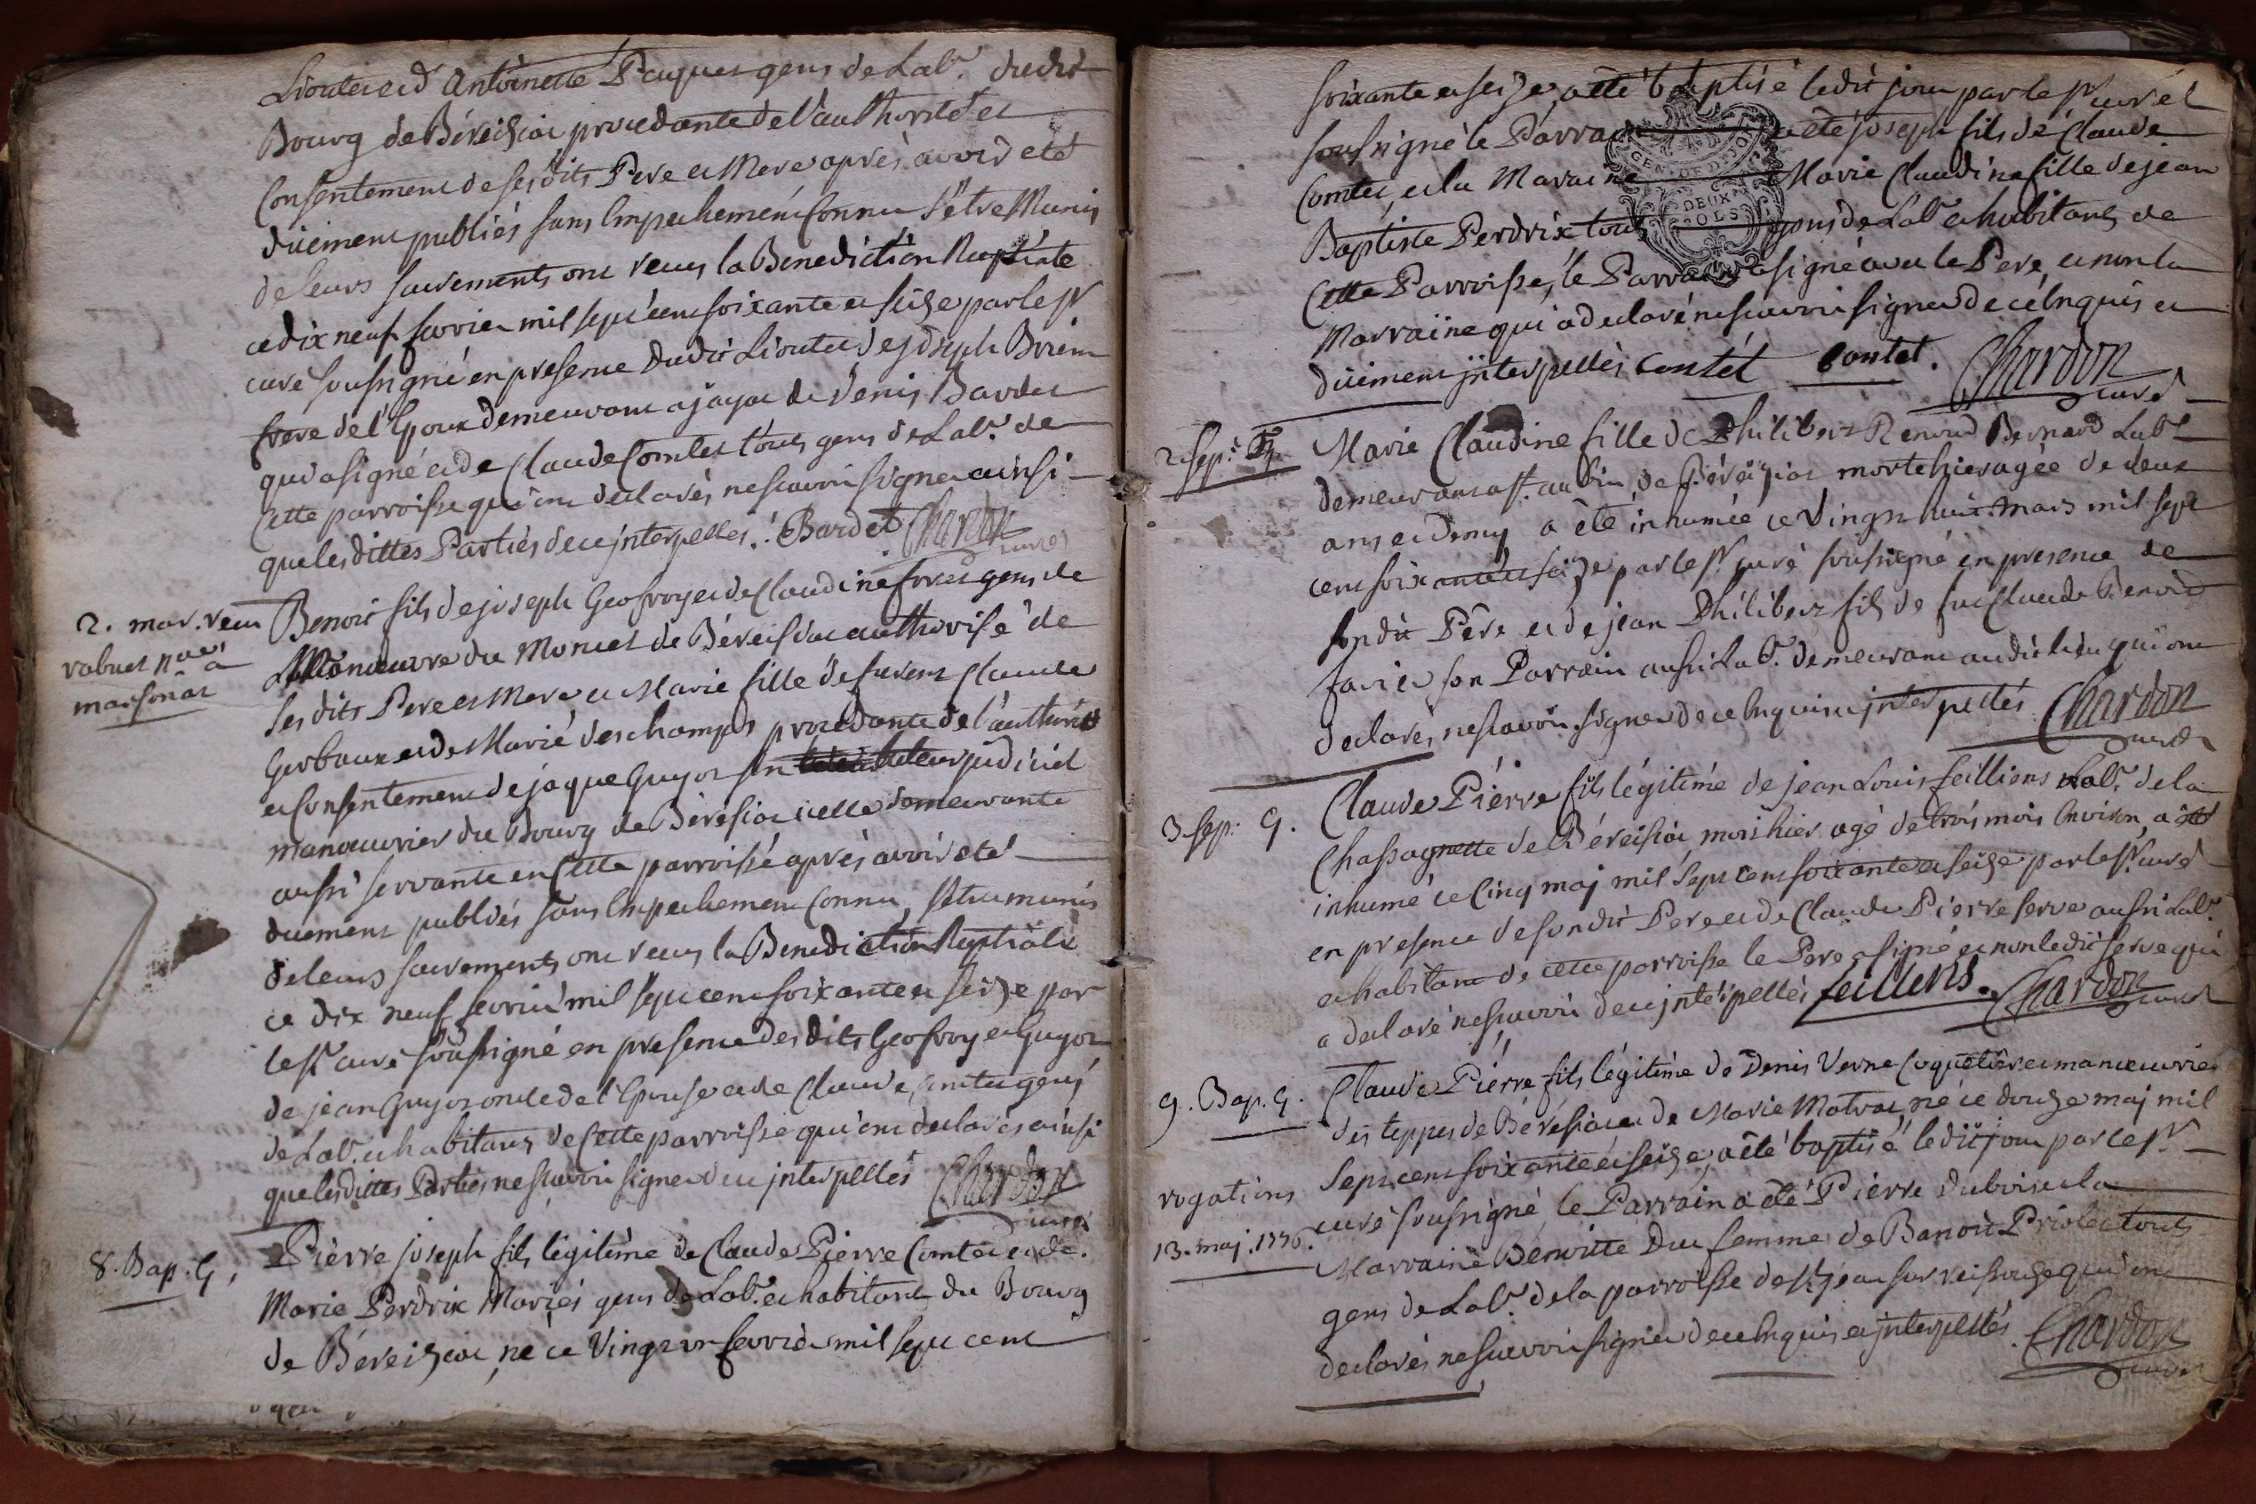 Lioutier et d'Antoinette Pauques gens de Lab.r dudit
Bourg de Béreiziat procedante de l'authorité et
Consentement de sesdits Pere et Mere après avoir été
düement publiés sans Empechement Connu s'etre Munis
de leurs sacrements ont reçus la Benediction Nuptiale
ce dix neuf fevrier mil sept cent soixante et seize par le Sr
curé soussigné en presence dudit Lioutier de joseph
frere de l'Epoux demeurant a jayat de Denis Bardet
qui a signé et de Claude Comtet touts gens de Lab.r de
Cette parroisse qui ont declarés ne scavoir signer ainsi
que lesdittes Parties de ce jnterpellés. Bardet Chardon
curé
2. mar. veu
rabuet n.re a
marsonas
Benoit fils de joseph Geofroy et de Claudine feves gens de
Manoeuvre du Moncet de Béreisiat authorisé de
sesdits Pere et Mere et Marie fille de furent Claude
Gerbaux et de Marie deschamps procedante de l'authorité
et Consentement de jaque Guyot son tuteur judiciel
manoeuvrier du Bourg de Béresiat icelle demeurante
aussi servante en Cette parroisse après avoir été
duement publiés sans Empechement Connu, s'etre munis
de leurs sacrements ont reçus la Benediction Nuptiale
ce dix neuf fevrier mil sept cent soixante et seize par
le Sr curé soussigné en presence desdits Geofroy et Guyot
de jean Guyot oncle de l'Epouse et de Claude Comtet gens
de Lab.r et habitants de Cette parroisse qui ont declarés ainsi
que lesdittes Parties ne scavoir signer de ce jnterpellés Chardon
curé
8. Bap. G.
Pierre joseph fils légitime de Claude Pierre Comtet et de
Marie Perdrix Mariés gens de Lab.r et habitants du Bourg
de Béreiziat, né ce Vingt un fevrier mil sept cent
soixante et seize, a été baptisé ledit jour par le Sr curé
soussigné le Parrain a été joseph fils de Claude
Comtet, et la Maraine Marie Claudine fille de jean
Baptiste Perdrix touts gens de Lab.r et habitants de
Cette Parroisse, le Parrain a signé avec le Pere, et non la
Marraine qui a declaré ne scavoir signer de ce Enquis et
düement jnterpellés Contét Contet. Chardon
curé
GEN. DE DIJON
DEUX
SOLS
2. Sep.
Marie Claudine fille de Philibert Renoud Bernard Lab.r
demeurant a St. aubin, de Béréiziat morte hier agée de deux
ans et Demy a été inhumée ce Vingt huit Mars mil sept
cent soixante et seize par le Sr curé soussigné en presence de
sondit Pére et de jean Philibert fils de feu Claude Benoit
favier son Parrain aussi Lab.r demeurant audit lieu qui ont
declarés ne scavoir signer de ce Enquis et jnterpellés Chardon
curé
3. sep. G.
Claude Pièrre fils légitime de jean Louis feilliens Lab.r de la
Chassagnette de Béreisiat, mort hier agé de trois mois Environ, a été
inhumé ce Cinq maj mil sept cent soixante et seize par le Sr curé
en presence de sondit Pere et de Claude Pierre ferve aussi Lab.r
et habitant de cette parroisse le Pere a signé et non ledit ferve qui
a declaré ne scavoir de ce jnterpellés feillens. Chardon
curé
9. Bap. G.
Claude Pièrre fils légitime de Denis Verne Coquetier et manoeuvrier
des teppes de Bérésiat et de Marie Matrat né ce douze maj mil
sept cent soixante et seize, a été baptisé ledit jour par le Sr
rogations
curé soussigné le Parrain a été Pierre Dubois et la
13. maj. 1776.
Marraine Benoitte Duc femme de Benoit Priolet touts
gens de Lab.r de la parroisse de St. jean sur reissouze qui ont
declarés ne scavoir signer de ce Enquis et jnterpellés. Chardon
curé